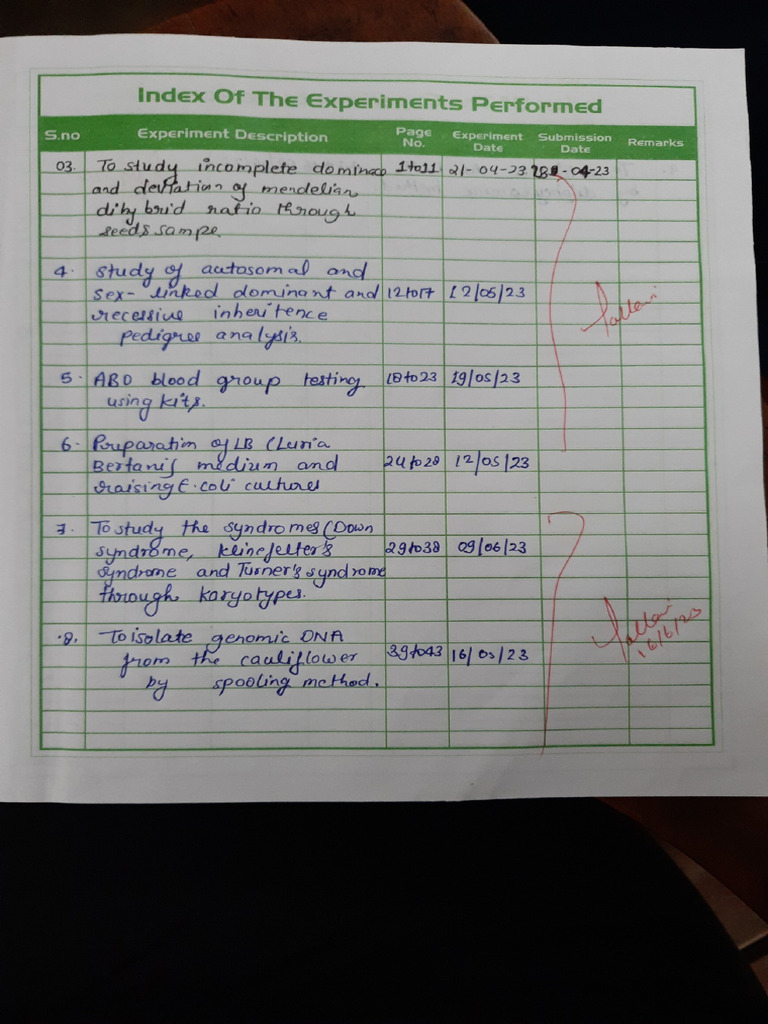 Index Of The Experiments Performed
S.no Experiment Description Page No. Experiment Date Submission Date Remarks
03. To study incomplete dominace 1to11 21-04-23 -04-23
and deviation of mendelian
dihybrid ratio through
seeds sampe.
4. Study of autosomal and
sex-linked dominant and 12to17 12/05/23
recessive inheritence
pedigree analysis.
5. ABO blood group testing 18to23 19/05/23
using kits.
6. Preparation of LB (Luria
Bertani) medium and 24to28 12/05/23
raising E.coli cultures
7. To study the syndromes (Down
syndrome, Klinefelter's 29to38 09/06/23
syndrome and Turner's syndrome
through karyotypes.
8. To isolate genomic DNA
from the cauliflower 39to43 16/ /23
by spooling method.
16/6/23